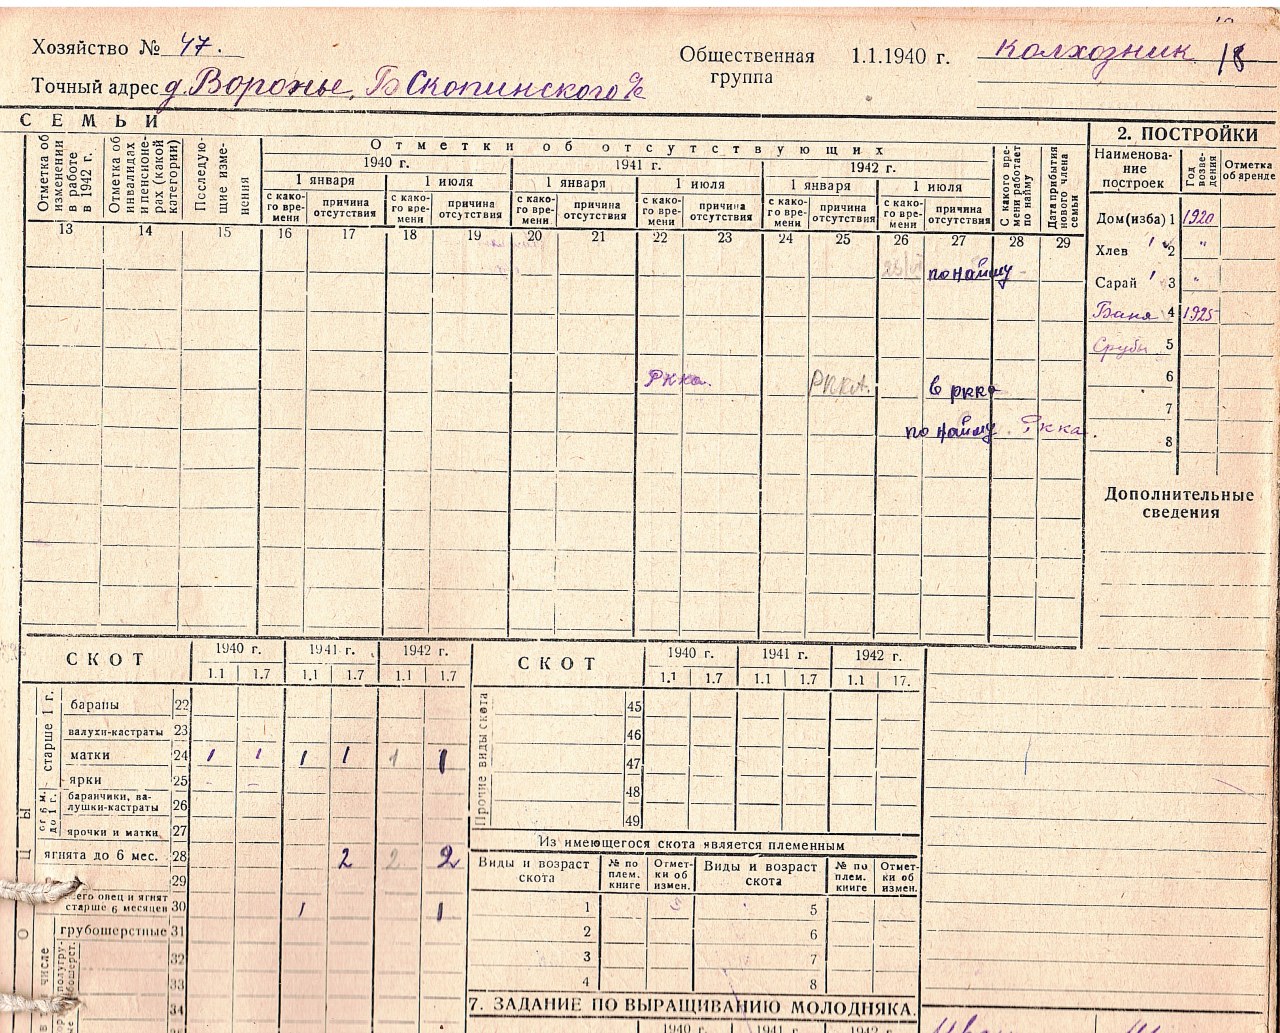 Хозяйство № 47.
Общественная группа 1.1.1940 г. Колхозник 18
Точный адрес д. Воронье, Б Скопинского с/с
СЕМЬИ
Отметка об изменении в работе в 1942 г.
Отметка об инвалидах и пенсионерах (какой категории)
Последующие изменения
Отметки об отсутствующих
1940 г. 1941 г. 1942 г.
1 января 1 июля 1 января 1 июля 1 января 1 июля
с какого времени причина отсутствия с какого времени причина отсутствия с какого времени причина отсутствия с какого времени причина отсутствия с какого времени причина отсутствия с какого времени причина отсутствия
С какого времени работает по найму
Дата прибытия нового члена семьи
13 14 15 16 17 18 19 20 21 22 23 24 25 26 27 28 29
по найму
РККа. РККА. в ркка
по найму Ркка.
2. ПОСТРОЙКИ
Наименование построек Год возведения Отметка об аренде
Дом (изба) 1 1920
Хлев 2 "
Сарай 3 "
Баня 4 1925
Срубы 5
6
7
8
Дополнительные сведения
СКОТ 1940 г. 1941 г. 1942 г.
1.1 1.7 1.1 1.7 1.1 1.7
старше 1 г.
бараны 22
валухи-кастраты 23
матки 24 1 1 1 1 1 1
ярки 25
от 6 м. до 1 г.
баранчики, валушки-кастраты 26
ярочки и матки 27
ягнята до 6 мес. 28 2 2 2
29
овец и ягнят старше 6 месяцев 30 1 1
грубошерстные 31
32
33
34
СКОТ 1940 г. 1941 г. 1942 г.
1.1 1.7 1.1 1.7 1.1 17.
Прочие виды скота
45
46
47
48
49
Из имеющегося скота является племенным
Виды и возраст скота № по плем. книге Отметки об измен. Виды и возраст скота № по плем. книге Отметки об измен.
1 5
2 6
3 7
4 8
7. ЗАДАНИЕ ПО ВЫРАЩИВАНИЮ МОЛОДНЯКА.
1940 г. 1941 г. 1942 г.